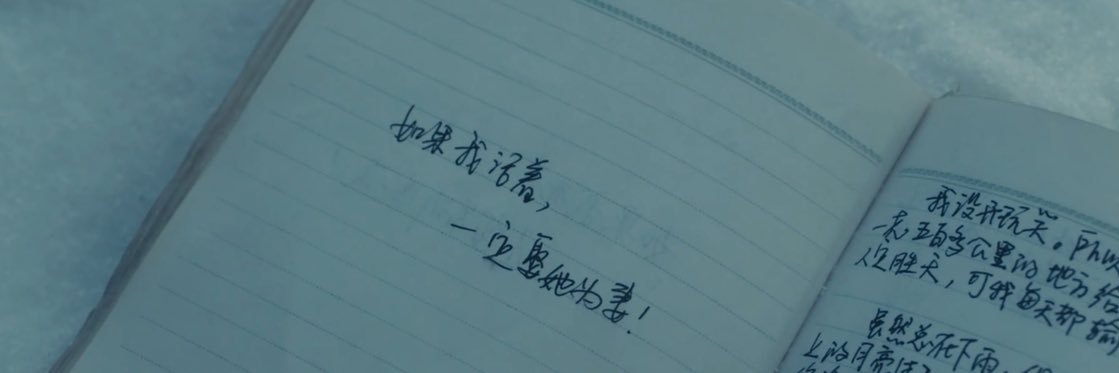 如果我活着,
一定娶她为妻!
我没开玩笑。
五百多公里的地方给
人定胜天,可我每天都输
虽然总在下雨,
上的月亮